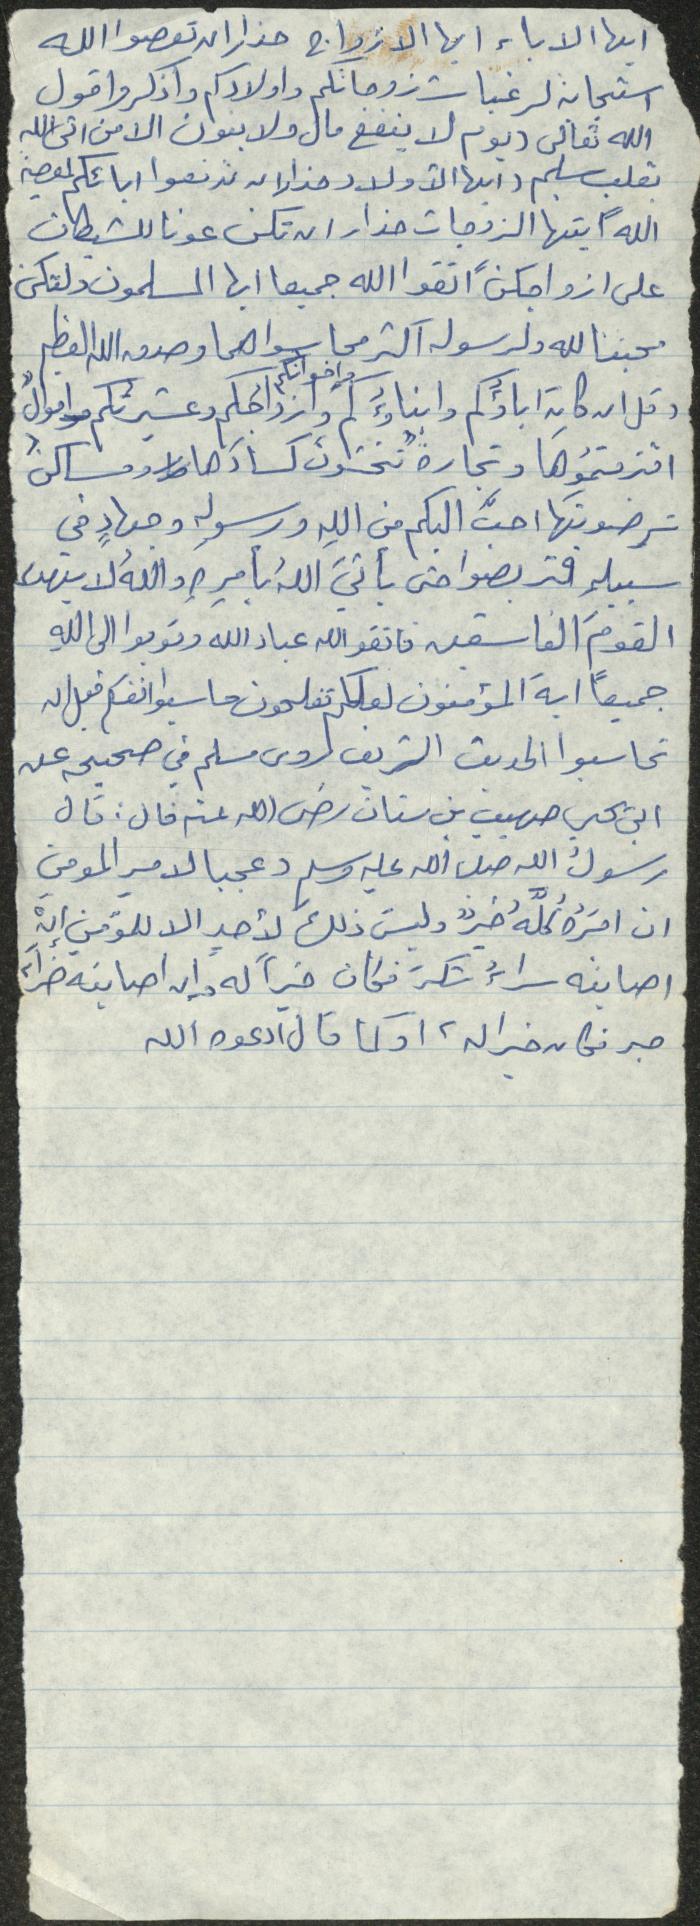 ايها الاباء ايها الازواج حذار ان تعصوا الله
استجابة لرغبات زوجاتكم واولادكم واذكروا قول
الله تعالى (يوم لا ينفع مال ولا بنون الا من اتى الله
بقلب سليم) ايها الأولاد حذار ان تدفعوا ابائكم لمعصية
الله ايتها الزوجات حذار ان تكن عونا للشيطان
على ازواجكن اتقوا الله جميعا ايها المسلمون ولتكن
محبتنا لله ولرسوله اكثر مما سواهما وصدق الله العظيم
(قل ان كان اباؤكم وابناؤكم واخوانكم وازواجكم وعشيرتكم واموالٌ
اقترفتموُهَا وتجارةٌ تخشونَ كسادَها ومساكنُ
ترضونهَا احبَّ اليكم من اللهِ ورسولهِ وجهادٍ في
سبيلهِ فتربصوا حتى يأتيَ اللهُ بأمرِهِ واللهُ لا يهدى
القومَ الفاسقين فاتقوا الله عباد الله وتوبوا الى اللهِ
جميعاً ايهَ المؤمنون لعلكم تفلحون حاسبوا انفسكم قبل ان
تحاسبوا الحديث الشريف روى مسلم في صحيحه عن
ابي يحيى صهيب بن سنان رضى الله عنه قال: قال
رسولُ الله صلى الله عليه وسلم (عجبا لامر المومن
ان امرَهُ كُلَّهُ خيرٌ وليسَ ذلكَ لأحدٍ الا للمؤمنِ إنْ
اصابته سراءُ شكرَ فكان خيراً له وإن اصابته ضراءُ
صبر فكان خيرا له) او كما قال ادعوه الله